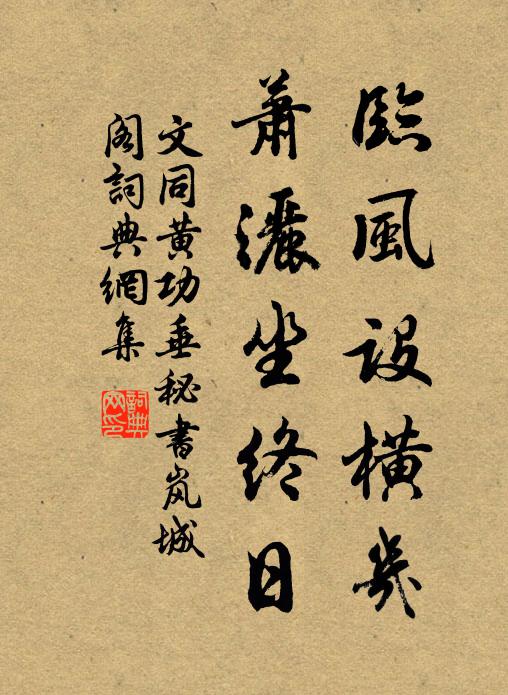 臨風設橫幾
蕭灑坐終日
文同黃功垂秘書嵐城
閣詞典網集
詞典网印